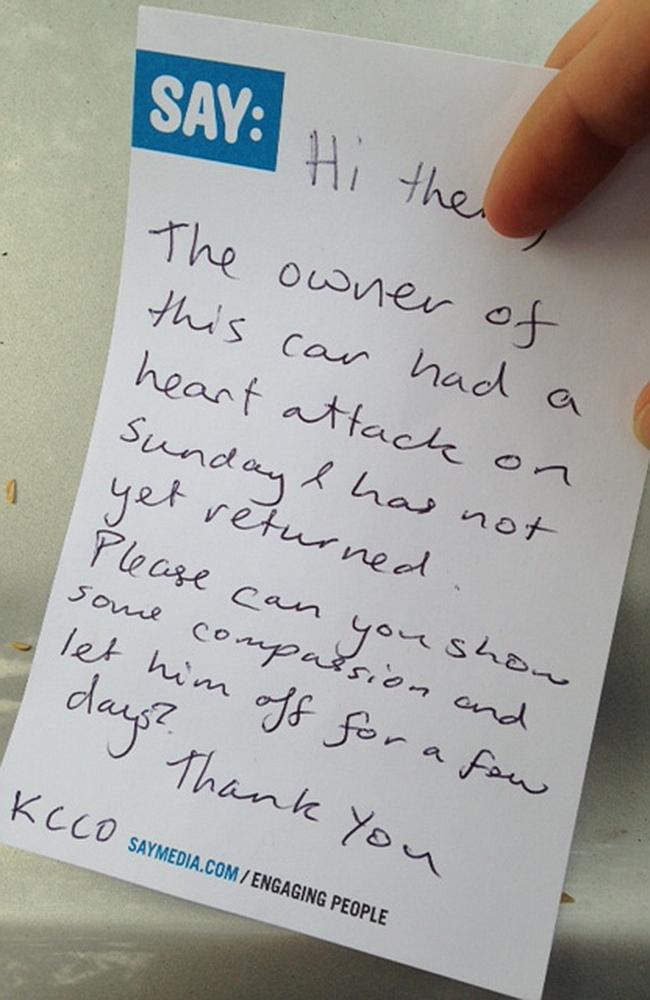 SAY:
Hi the
The owner of
this car had a
heart attack on
Sunday & has not
yet returned.
Please can you show
some compassion and
let him off for a few
days?
Thank You
KCCO
SAYMEDIA.COM / ENGAGING PEOPLE